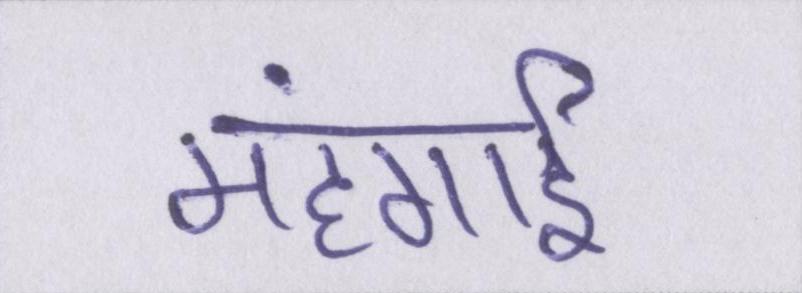 महंगाई